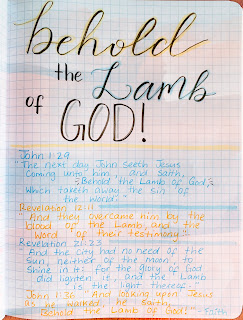 behold
the Lamb
of GOD!
John 1:29
"The next day John seeth Jesus
Coming unto him, and saith,
Behold the Lamb of God,
Which taketh away the sin of
the world."
Revelation 12:11
"And they overcame him by the
blood of the Lamb, and the
Word of their testimony."
Revelation 21:23
"And the city had no need of the
Sun, neither of the moon, to
Shine in it: for the glory of God
did lighten it, and the Lamb
is the light thereof."
John 1:36 And looking upon Jesus
as he walked, he saith,
Behold the Lamb of God!"